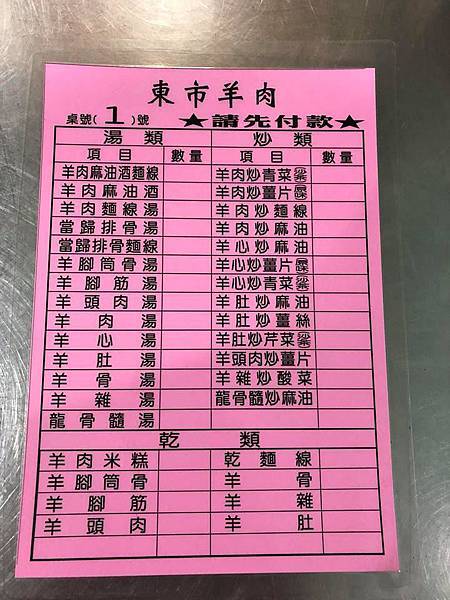 東市羊肉
桌號( 1 )號 ★請先付款★
湯類 炒類
項目 數量 項目 數量
羊肉麻油酒麵線 羊肉炒青菜
羊肉麻油酒 羊肉炒薑片
羊肉麵線湯 羊肉炒麵線
當歸排骨湯 羊肉炒麻油
當歸排骨麵線 羊心炒麻油
羊腳筒骨湯 羊心炒薑片
羊腳筋湯 羊心炒青菜
羊頭肉湯 羊肚炒麻油
羊肉湯 羊肚炒薑絲
羊心湯 羊肚炒芹菜
羊肚湯 羊頭肉炒薑片
羊骨湯 羊雜炒酸菜
羊雜湯 龍骨髓炒麻油
龍骨髓湯
乾類
羊肉米糕 乾麵線
羊腳筒骨 羊骨
羊腳筋 羊雜
羊頭肉 羊肚